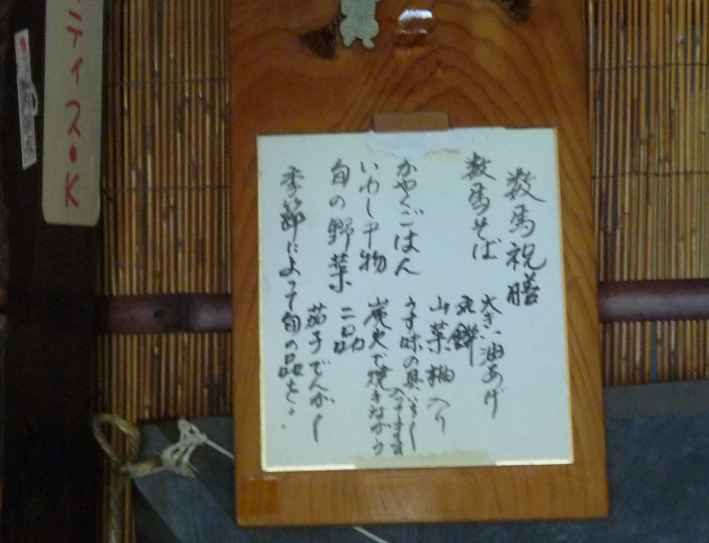 数馬祝膳
数馬そば
大きい油あげ
丸餅
山菜柚入り
かやくごはん
うす味の具
いわし干物
炭火で焼きながら
旬の野菜
二品
茄子でんがく
季節によって旬の品を・
ティスOK